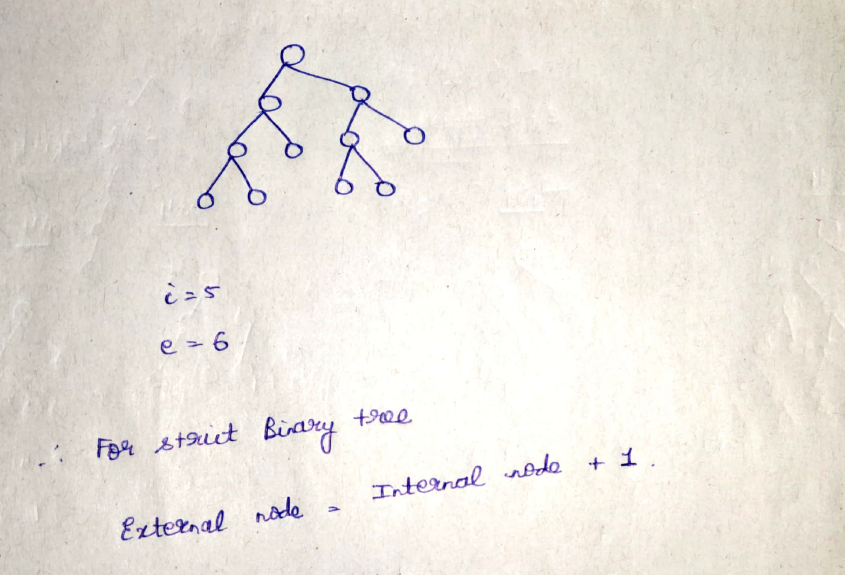 i = 5
e = 6
∴ For strict Binary tree
External node = Internal node + 1.